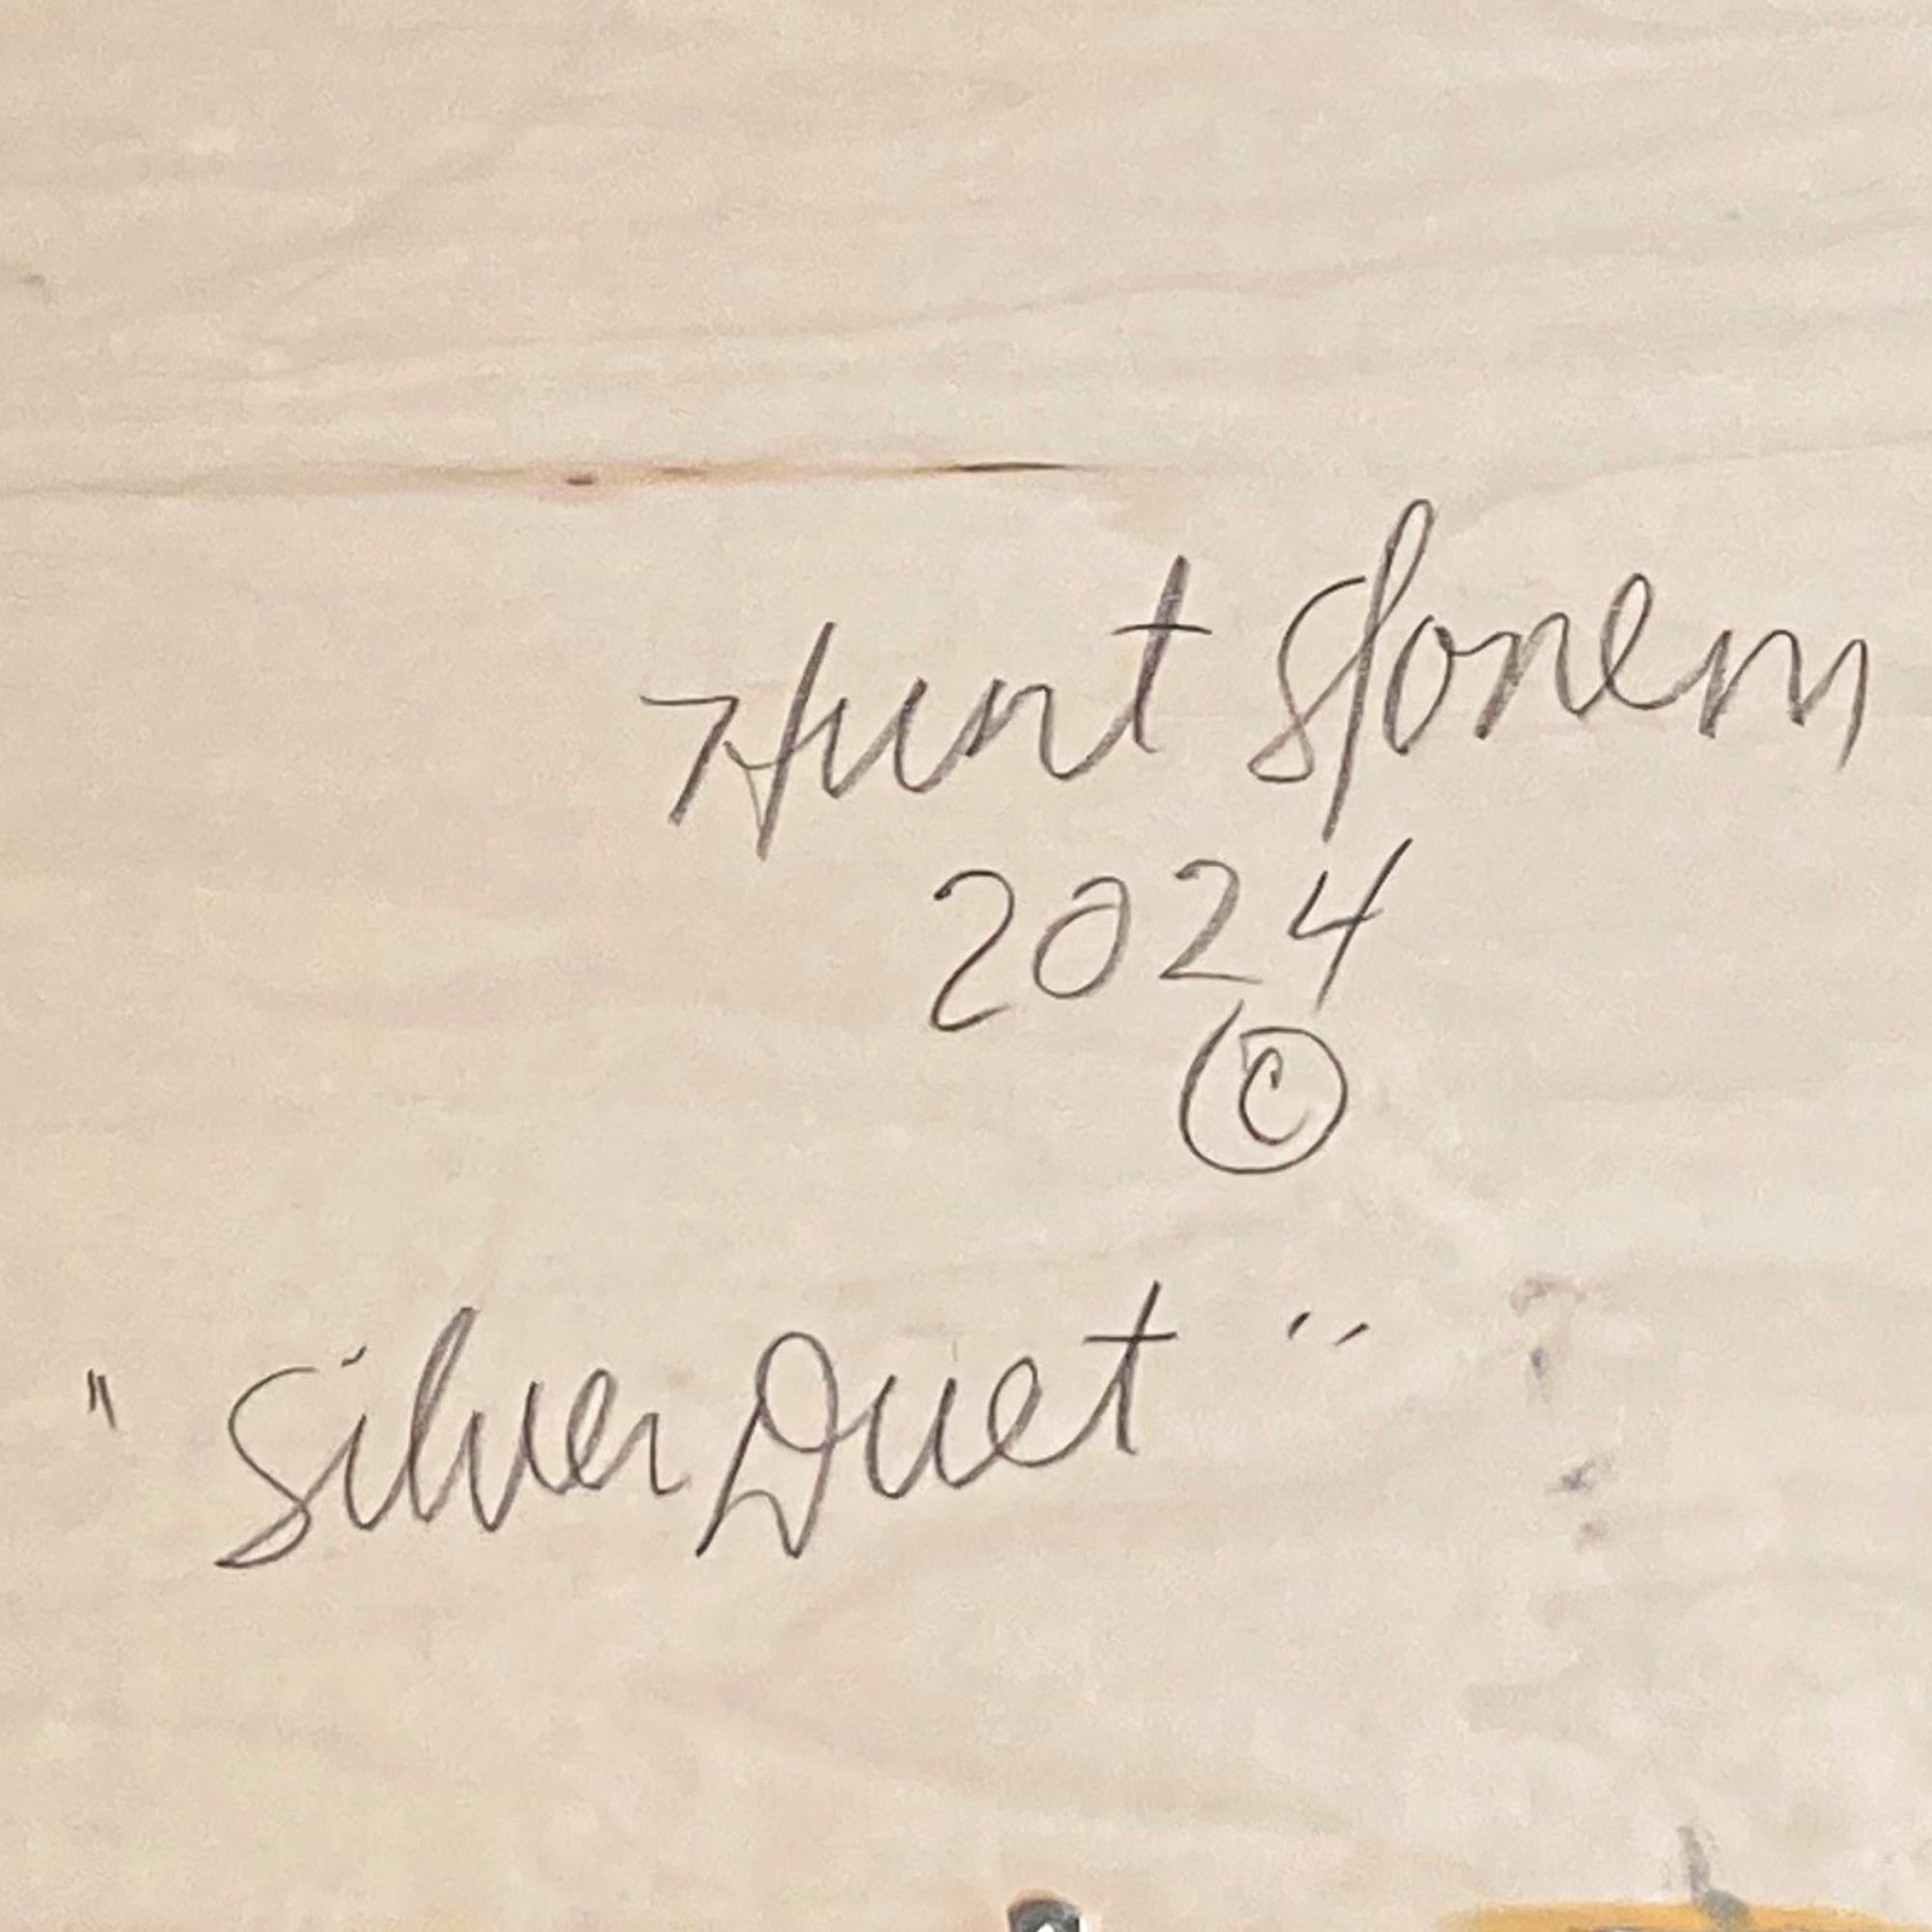 Hunt Slonem
2024
©
"Silver Duet"